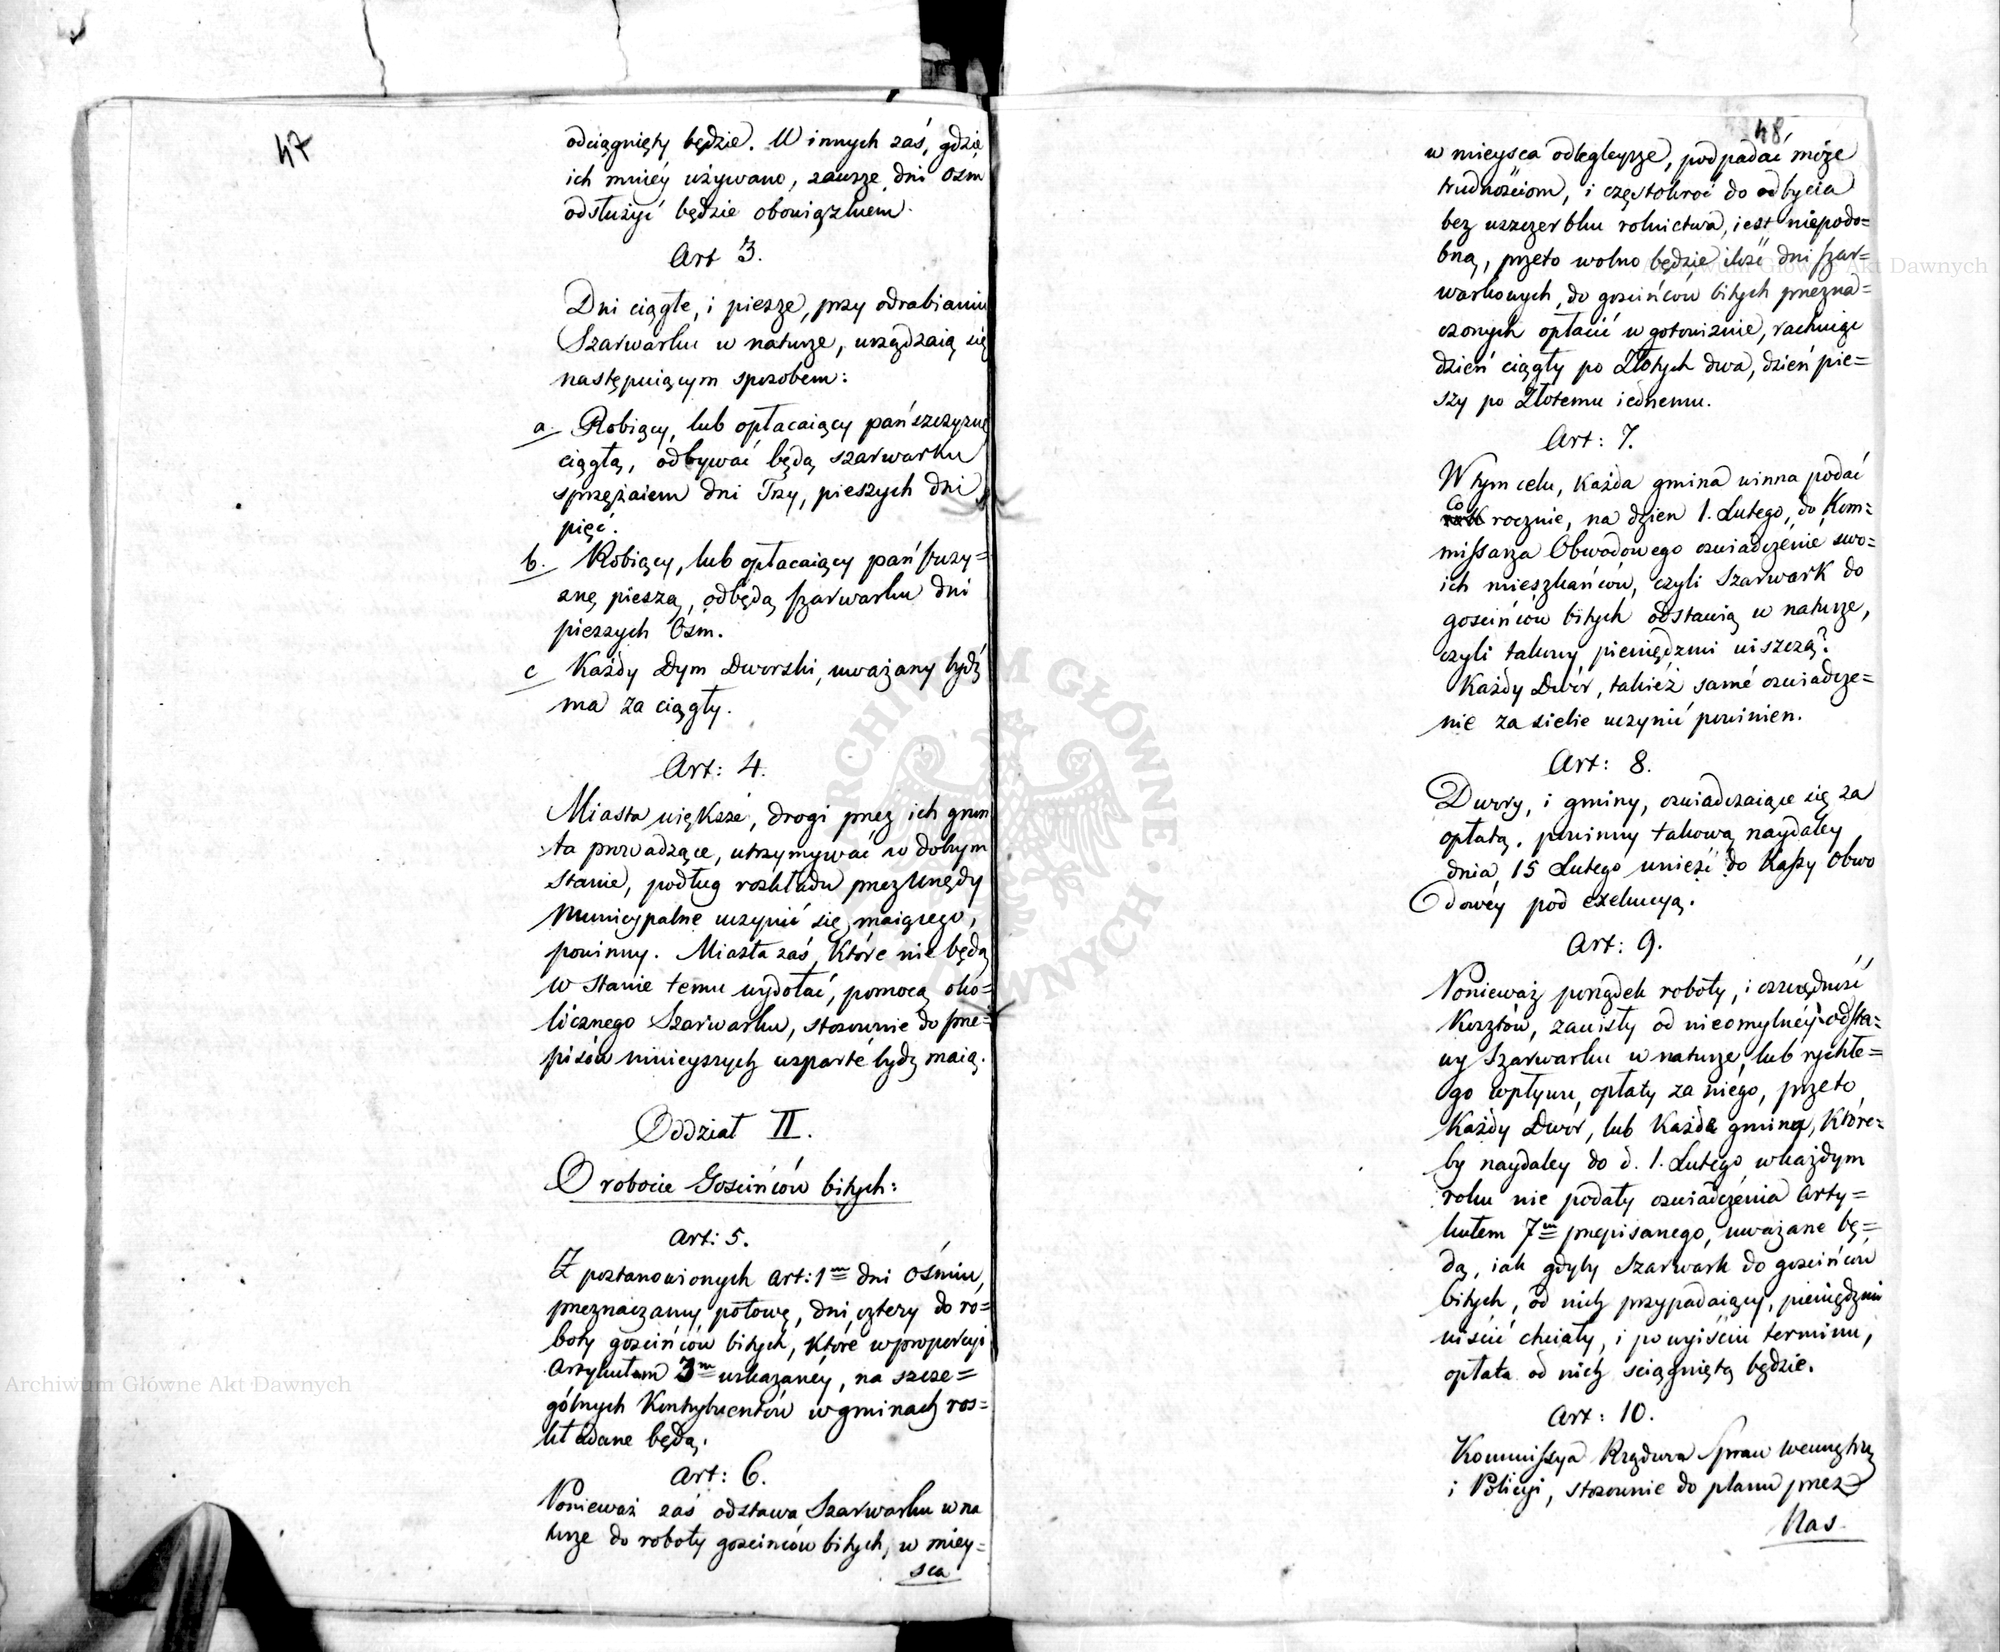 47
odciągnięty będzie. W innych zaś, gdzie
ich mniéy używano, zawsze dni ośm
odsłużyć będzie obowiązkiem.
Art 3.
Dni ciągłe, i piesze, przy odrabianiu
Szarwarku w naturze, urządzaią się
następuiącym sposobem:
a. Robiący, lub opłacaiący pańszczyznę
ciągłą, odbywać będą szarwarku
sprzężaiem dni Trzy, pieszych dni
pięć.
b. Robiący, lub opłacaiący pańszczy=
znę pieszą, odbędą szarwarku dni
pieszych Ośm.
c Każdy Dym Dworski, uważany bydź
ma za ciągły.
Art: 4.
Miasta większe, drogi przez ich grun
ta prowadzące, utrzymywać w dobrym
stanie, podług rozkładu przez Urzędy
Municypalne uczynić się maiącego,
powinny. Miasta zaś, które nie będą
w stanie temu wydołać, pomocą oko=
licznego Szarwarku, stosownie do prze=
pisów ninieyszych wsparte bydź maią.
Oddział II.
O robocie Gościńców bitych:
Art: 5.
Z postanowionych Art: 1m dni ośmiu,
przeznaczamy połowę, dni cztery do ro=
boty gościńców bitych, które w proporcyi
Artykułem 3m wskazanéy, na szcze=
gólnych Kontrybuentów w gminach roz=
kładane będą.
Art: 6.
Ponieważ zaś odstawa Szarwarku w na
turze do roboty gościńców bitych, w miey=
sca
48
w mieysca odlegleysze, podpadać może
trudnościom, i częstokroć do odbycia
bez uszczerbku rolnictwa, iest niepodo=
bną, przeto wolno będzie ilość dni szar=
warkowych, do gościńców bitych przezna=
czonych opłacić w gotowiznie, rachuiąc
dzień ciągły po Złotych dwa, dzień pie=
szy po Złotemu iednemu.
Art: 7.
W tym celu, każda gmina winna podać
Co
rocznie, na dzien 1. Lutego, do Kom=
missarza Obwodowego oświadczenie swo=
ich mieszkańców, czyli Szarwark do
gościńców bitych odstawią w naturze,
czyli takowy pieniędzmi uiszczą?
Każdy Dwór, takież samé oświadcze=
nie za siebie uczynić powinien.
Art: 8.
Dwory, i gminy, oświadczaiące się za
opłatą, powinny takową naydaley
dnia 15 Lutego unieść do Kassy Obwo
dowéy pod exekucyą.
Art: 9.
Ponieważ porządek roboty, i oszczędność
Kosztów, zawisły od nieomylnéy odsta=
wy Szarwarku w naturze, lub rychłe=
go wpływu, opłaty za niego, przeto
Każdy Dwór, lub Każda gmina, któré=
by naydaley do d. 1. Lutego w każdym
roku nie podały oświadczenia Arty=
kułem 7m przepisanego, uważane bę=
dą, iak gdyby Szarwark do gościńców
bitych, od nich przypadaiący, pieniędzmi
uiścić chciały, i po wyiściu terminu,
opłata od nich sciągniętą będzie.
Art: 10.
Kommissya Rządowa Spraw Wewnętrz
i Policyi, stosownie do planu przez
Nas
Archiwum Główne Akt Dawnych
Archiwum Główne Akt Dawnych
ARCHIWUM GŁÓWNE AKT DAWNYCH